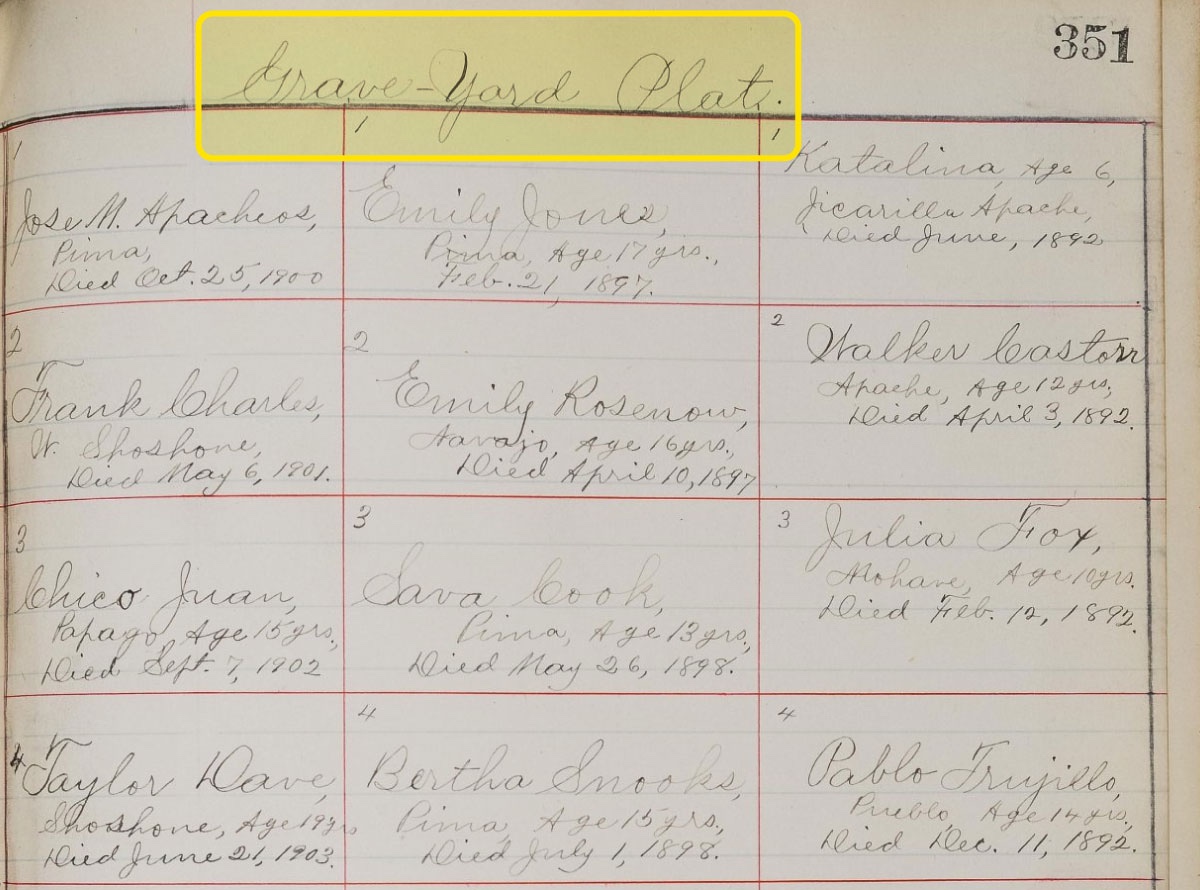 351
Grave-Yard Plat.
1
Jose M. Apacheos,
Pima,
Died Oct. 25, 1900
1
Emily Jones,
Pima, Age 17 yrs.,
Feb. 21, 1897.
1
Katalina, Age 6,
Jicarilla Apache,
Died June, 1892
2
Frank Charles,
W. Shoshone,
Died May 6, 1901.
2
Emily Rosenow,
Navajo, Age 16 yrs.,
Died April 10, 1897
2
Walker Castorr
Apache, Age 12 yrs,
Died April 3, 1892.
3
Chico Juan,
Papago, Age 15 yrs,
Died Sept. 7, 1902
3
Sava Cook,
Pima, Age 13 yrs,
Died May 26, 1898.
3
Julia Fox,
Mohave, Age 10 yrs.
Died Feb. 12, 1892.
4
Taylor Dave,
Shoshone, Age 19 yrs
Died June 21, 1903.
4
Bertha Snooks,
Pima, Age 15 yrs,
Died July 1, 1898.
4
Pablo Trujillo,
Pueblo, Age 14 yrs,
Died Dec. 11, 1892.